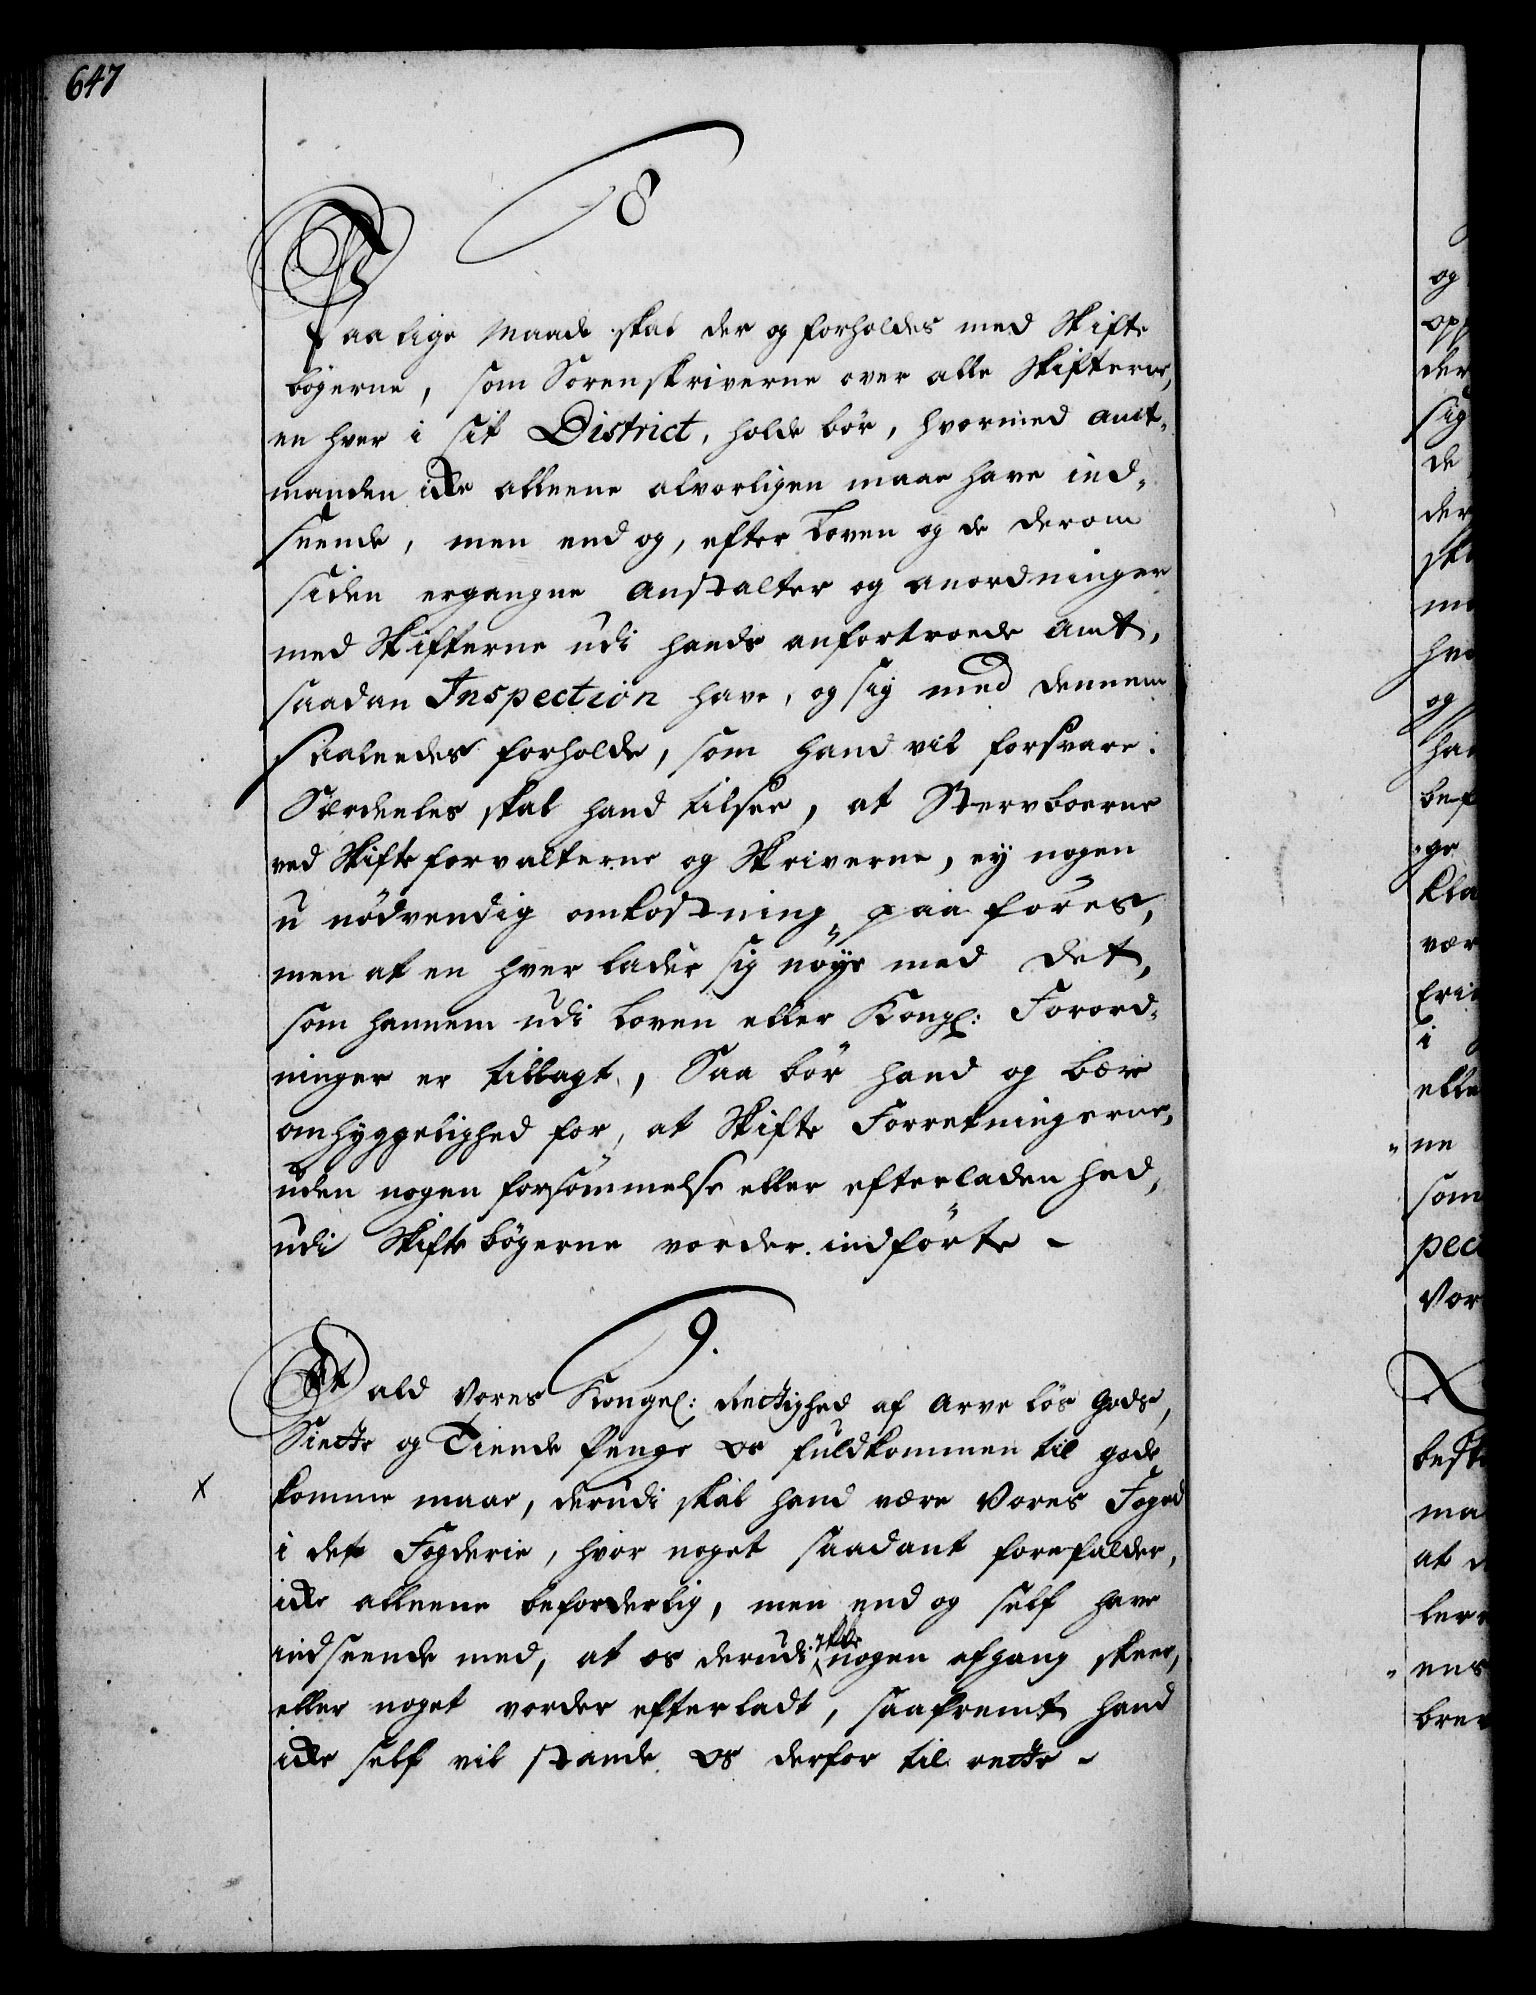 647
8
Paa lige Maade skal der og forholdes med Skifte
bøgerne, som Sorenskriverne over alle Skifterne,
en hver i sit District, holde bør, hvormed Amt-
manden icke alleene alvorligen maae have ind-
seende, men end og, efter Loven og de derom
siden ergangne Anstalter og anordninger
med Skifterne udi hands anfortroede Amt,
saadan Inspection have, og sig med dennem
saaleedes forholde, som hand vil forsvare:
Særdeeles skal hand tilsee, at Stervboerne
ved Skifteforvalterne og Skriverne, ey nogen
u nödvendig omkostning paa föres,
men at en hver lader sig nöye med det,
som hannem udi Loven eller Kongel: Forord-
ninger er tillagt, Saa bör hand og bære
omhyggelighed for, at Skifte Forretningerne,
uden nogen forsömmelse eller efterladenhed,
udi Skiftebögerne vorder indförte -
9.
At ald Vores Kongel: Rettighed af Arve lös Gods,
Siette og Tiende Penge os fuldkommen til gode
x
komme maae, derudi skal hand være Vores Foged
i det Fogderie, hvor noget saadant forefalder,
icke alleene beforderlig, men end og self have
indseende med, at os derudi icke nogen afgang skeer,
eller noget vorder efterladt, saafremt hand
icke self vil stande os derfor til rette -
og
der
sig
de
der
og
ge
i
elle
ne
som
pec
Vor
ma
at
ens